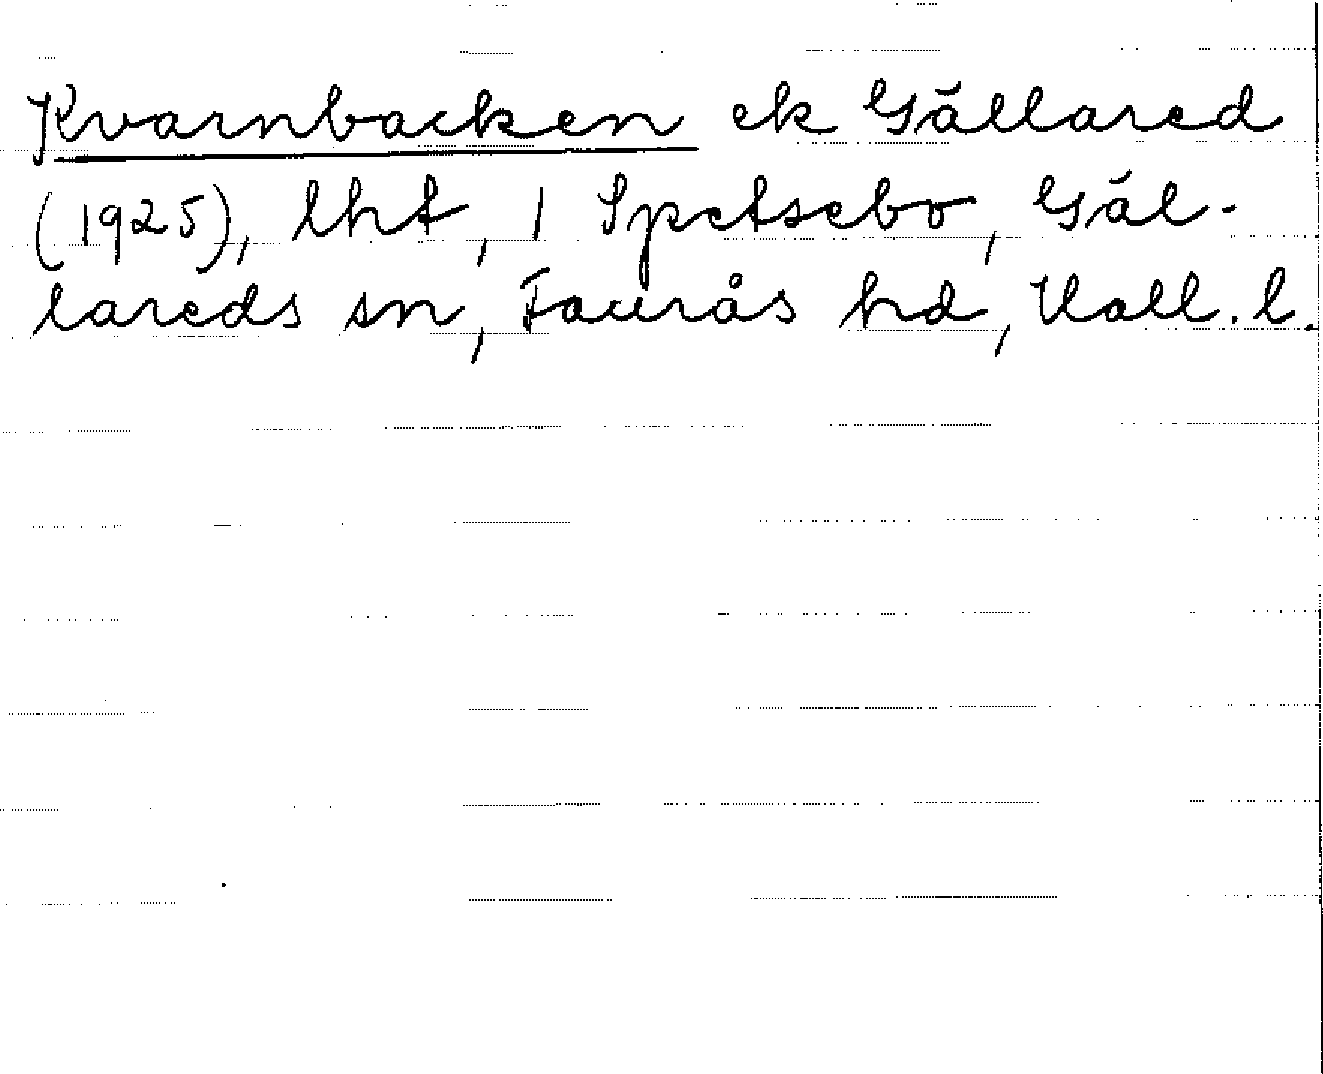 Kvarnbacken ek Gällared
(1925), lht, 1 Spetsebo, Gäl-
lareds sn, Faurås hd, Hall. l.